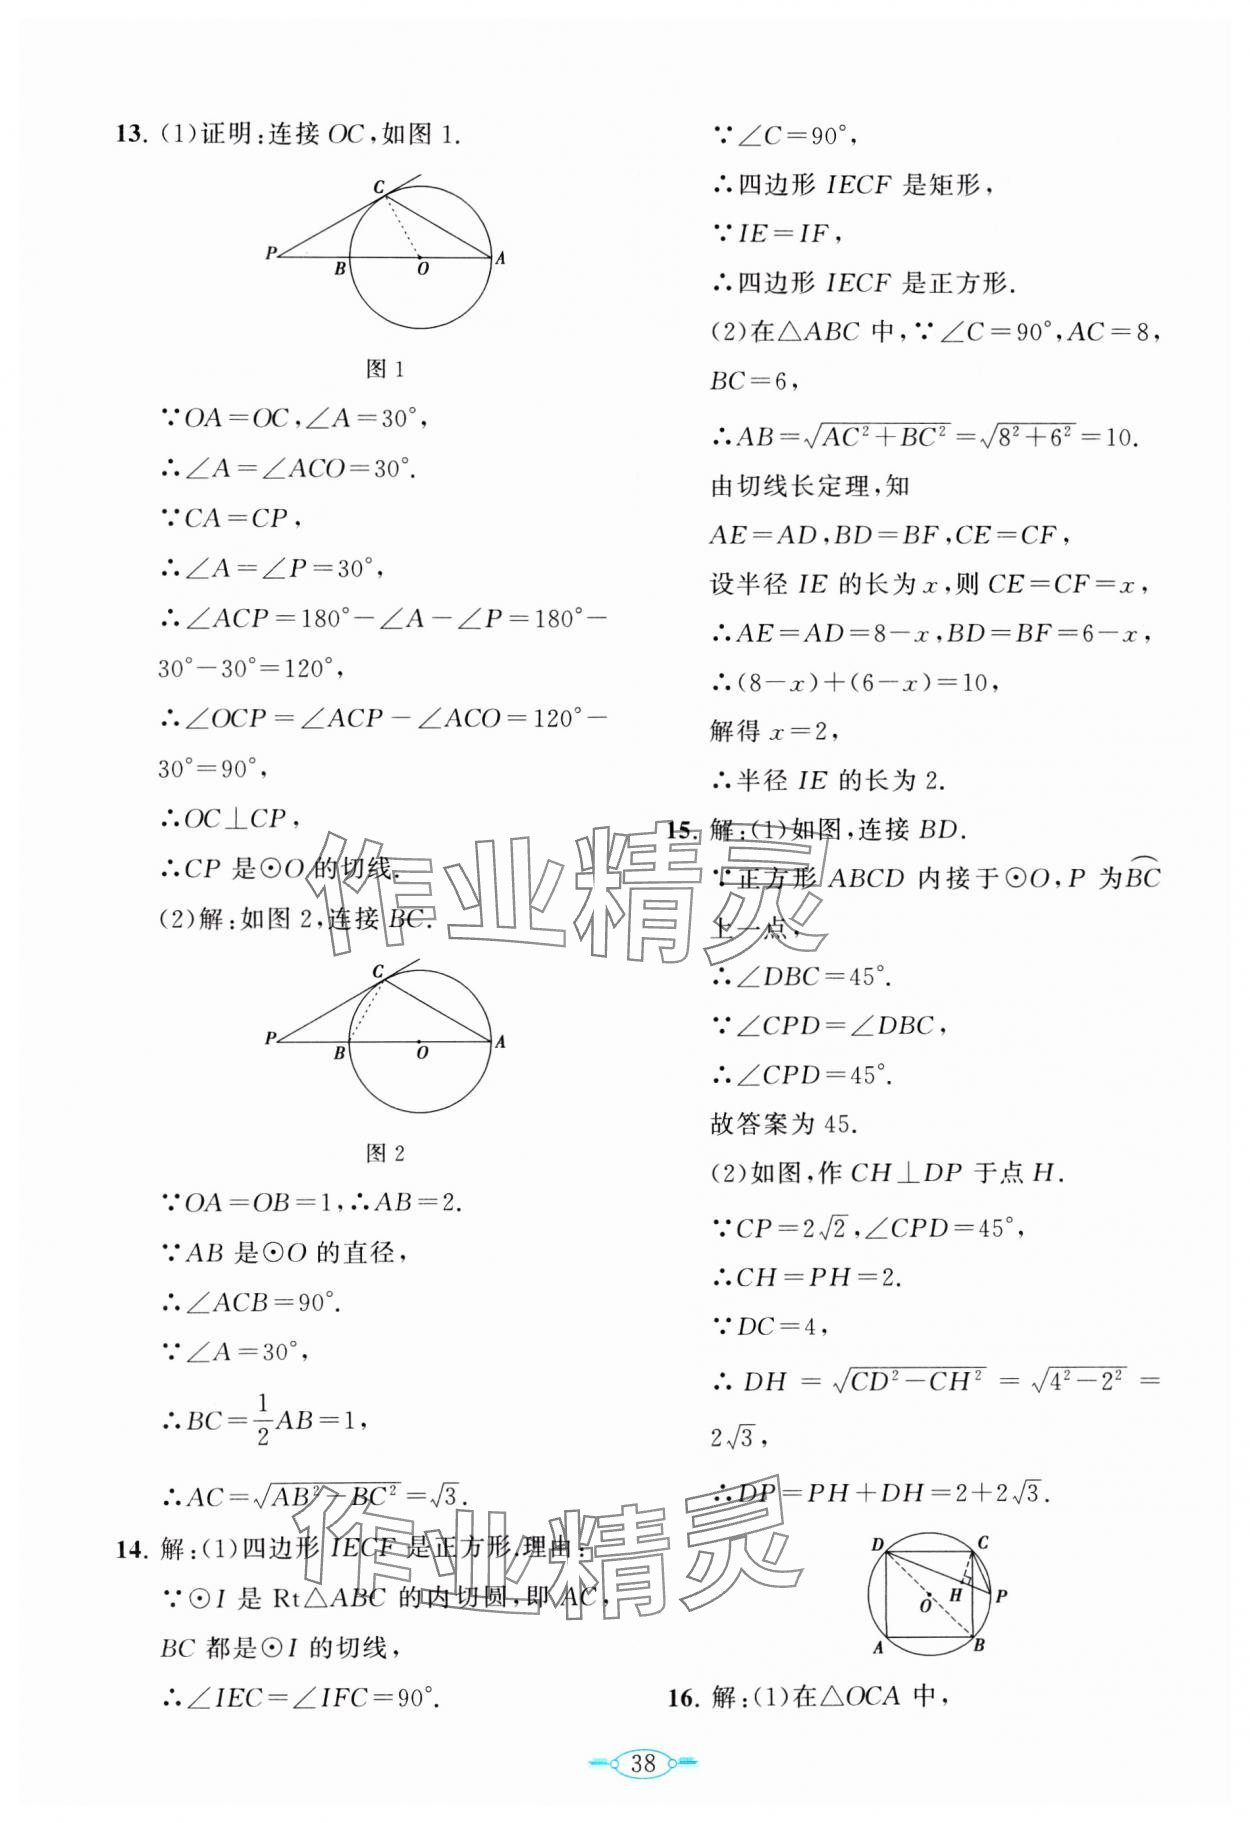 13. (1)证明:连接 OC,如图 1.
C
P
B
O
A
图 1
∵OA=OC,∠A=30°,
∴∠A=∠ACO=30°.
∵CA=CP,
∴∠A=∠P=30°,
∴∠ACP=180°-∠A-∠P=180°-
30°-30°=120°,
∴∠OCP=∠ACP-∠ACO=120°-
30°=90°,
∴OC⊥CP,
∴CP 是⊙O 的切线.
(2)解:如图 2,连接 BC.
C
P
B
O
A
图 2
∵OA=OB=1,∴AB=2.
∵AB 是⊙O 的直径,
∴∠ACB=90°.
∵∠A=30°,
∴BC=1/2AB=1,
∴AC=√(AB²-BC²)=√3.
14. 解:(1)四边形 IECF 是正方形,理由:
∵⊙I 是 Rt△ABC 的内切圆,即 AC,
BC 都是⊙I 的切线,
∴∠IEC=∠IFC=90°.
∵∠C=90°,
∴四边形 IECF 是矩形,
∵IE=IF,
∴四边形 IECF 是正方形.
(2)在△ABC 中,∵∠C=90°,AC=8,
BC=6,
∴AB=√(AC²+BC²)=√(8²+6²)=10.
由切线长定理,知
AE=AD,BD=BF,CE=CF,
设半径 IE 的长为 x,则 CE=CF=x,
∴AE=AD=8-x,BD=BF=6-x,
∴(8-x)+(6-x)=10,
解得 x=2,
∴半径 IE 的长为 2.
15. 解:(1)如图,连接 BD.
∵正方形 ABCD 内接于⊙O,P 为⌒BC
上一点,
∴∠DBC=45°.
∵∠CPD=∠DBC,
∴∠CPD=45°.
故答案为 45.
(2)如图,作 CH⊥DP 于点 H.
∵CP=2√2,∠CPD=45°,
∴CH=PH=2.
∵DC=4,
∴DH=√(CD²-CH²)=√(4²-2²)=
2√3,
∴DP=PH+DH=2+2√3.
D
C
H
P
O
A
B
16. 解:(1)在△OCA 中,
38
作业精灵
作业精灵